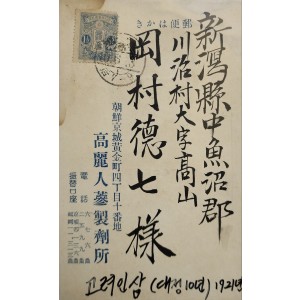 郵便はかき
新潟縣中魚沼郡
川治村大字高山
岡村德七様
朝鮮京城黃金町四丁目十番地
高麗人蔘製劑所
電話
振替口座
고려인삼 (대정10년) 1921년